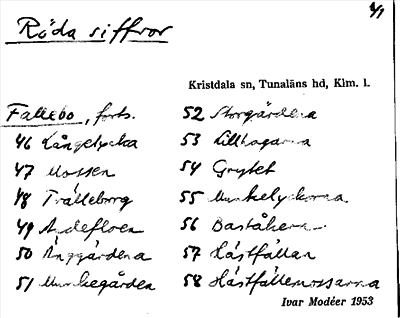 4/1
Röda siffror
Kristdala sn, Tunaläns hd, Klm. l.
Fallebo, forts.
46 Långelycka
47 Mossen
48 Trälleborg
49 Andefloen
50 Änggårdena
51 Munkegården
52 Storgårdena
53 Lillhagarna
54 Grytet
55 Munkelyckorna
56 Baståkern
57 Hästfällan
58 Hästfällemossarna
Ivar Modéer 1953